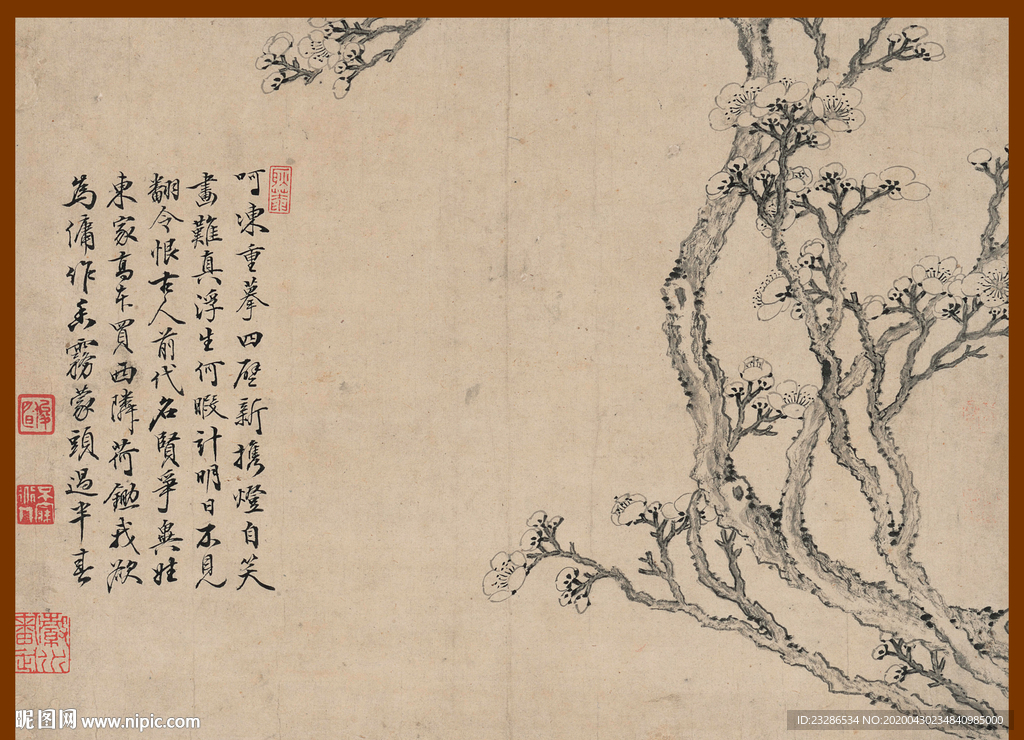 耿菴
呵凍重摹四壁新攜燈自笑
畫難真浮生何暇計明日不見
翻令恨古人前代名賢爭與娃
東家高買西隣荷鋤我欲
為傭作香霧蒙頭過半春
昵图网 www.nipic.com
ID:23286534 NO:20200430234840985000